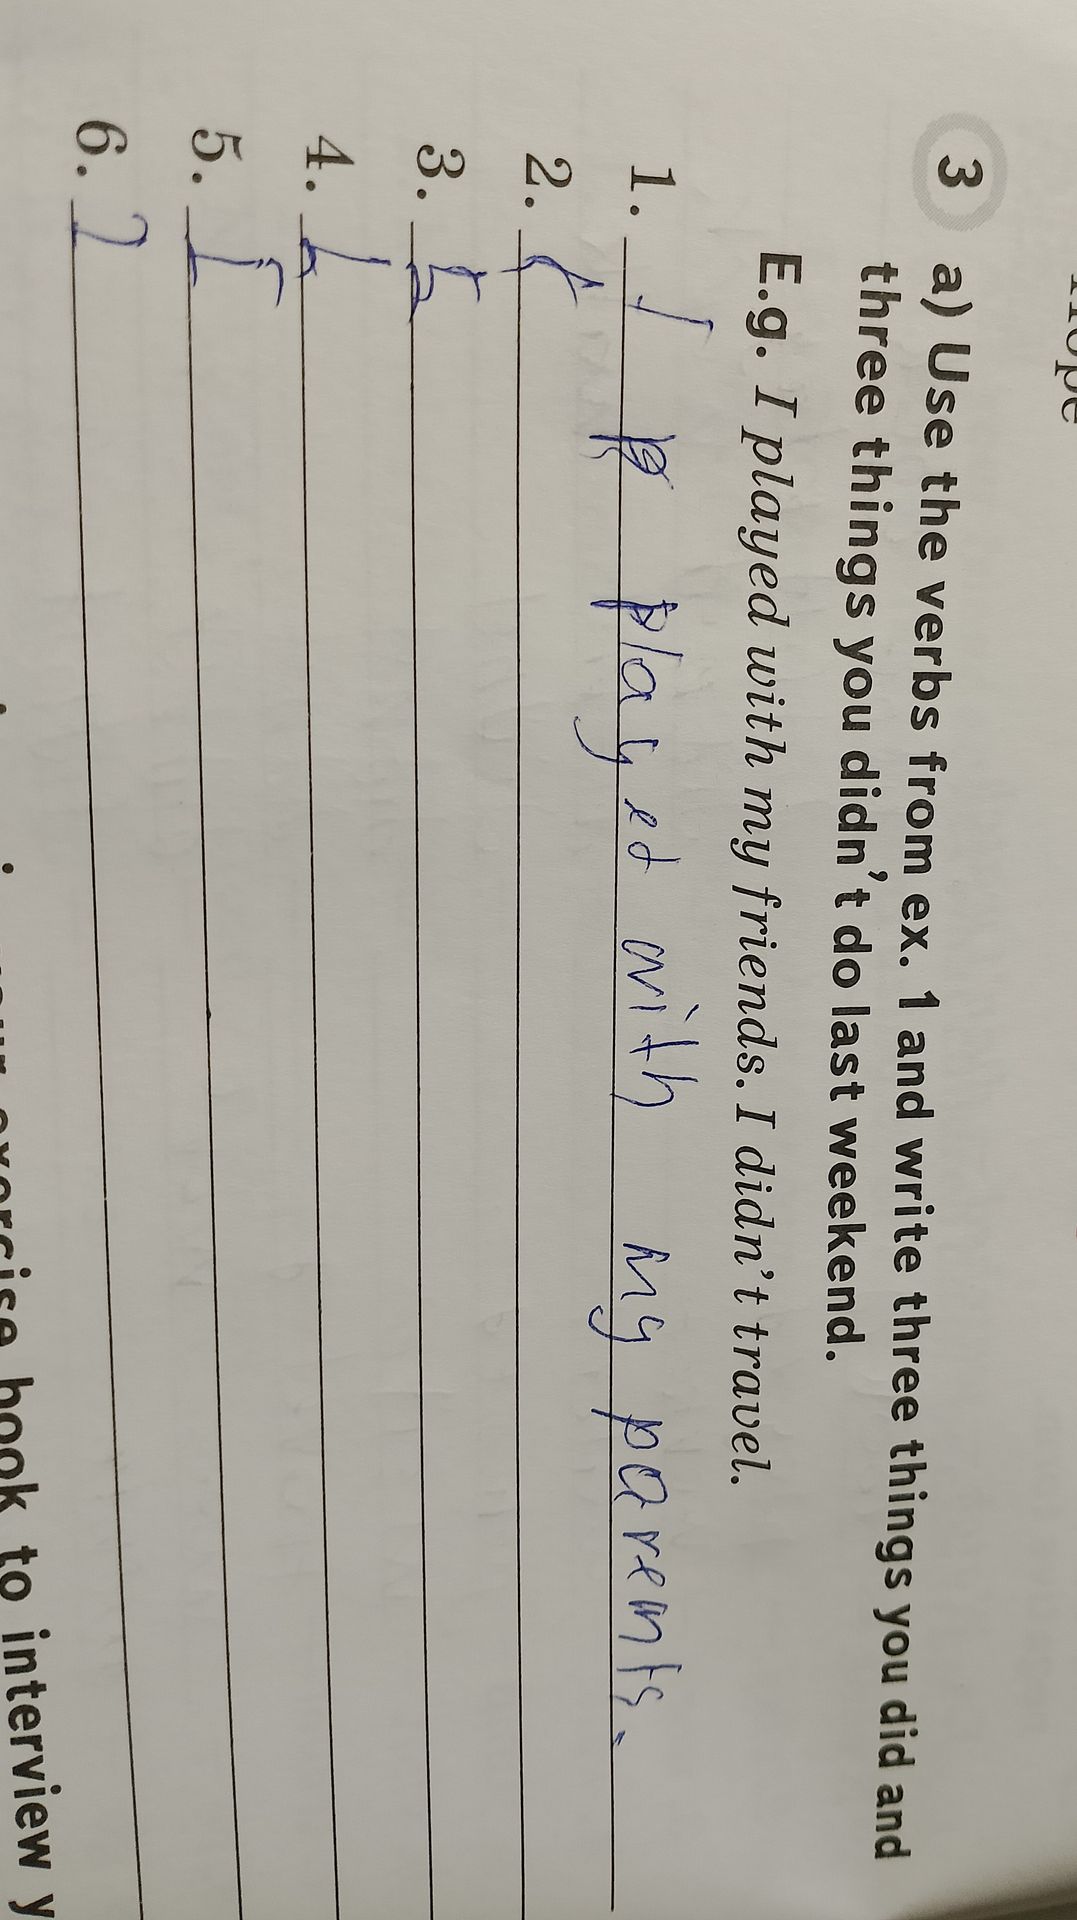 3 a) Use the verbs from ex. 1 and write three things you did and
three things you didn't do last weekend.
E.g. I played with my friends. I didn't travel.
1. I played with my parents.
2.
3. I
4. I
5. I
6. I
exercise book to interview y